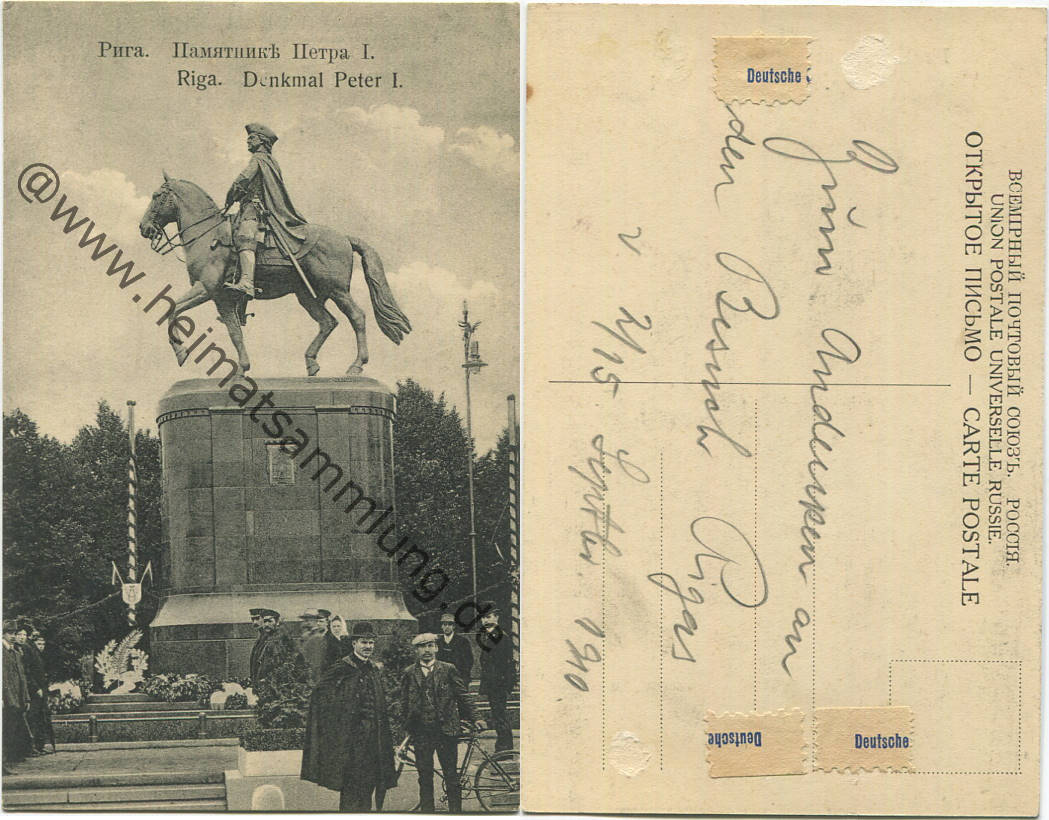 Рига. Памятникъ Петра I.
Riga. Denkmal Peter I.
@www.heimatsammlung.de
ВСЕМІРНЫЙ ПОЧТОВЫЙ СОЮЗЪ. РОССІЯ.
UNION POSTALE UNIVERSELLE RUSSIE.
ОТКРЫТОЕ ПИСЬМО — CARTE POSTALE
Zum Andenken an
den Besuch Rigas
v. 2/15. Septbr. 1910.
Deutsche
Deutsche
Deutsche